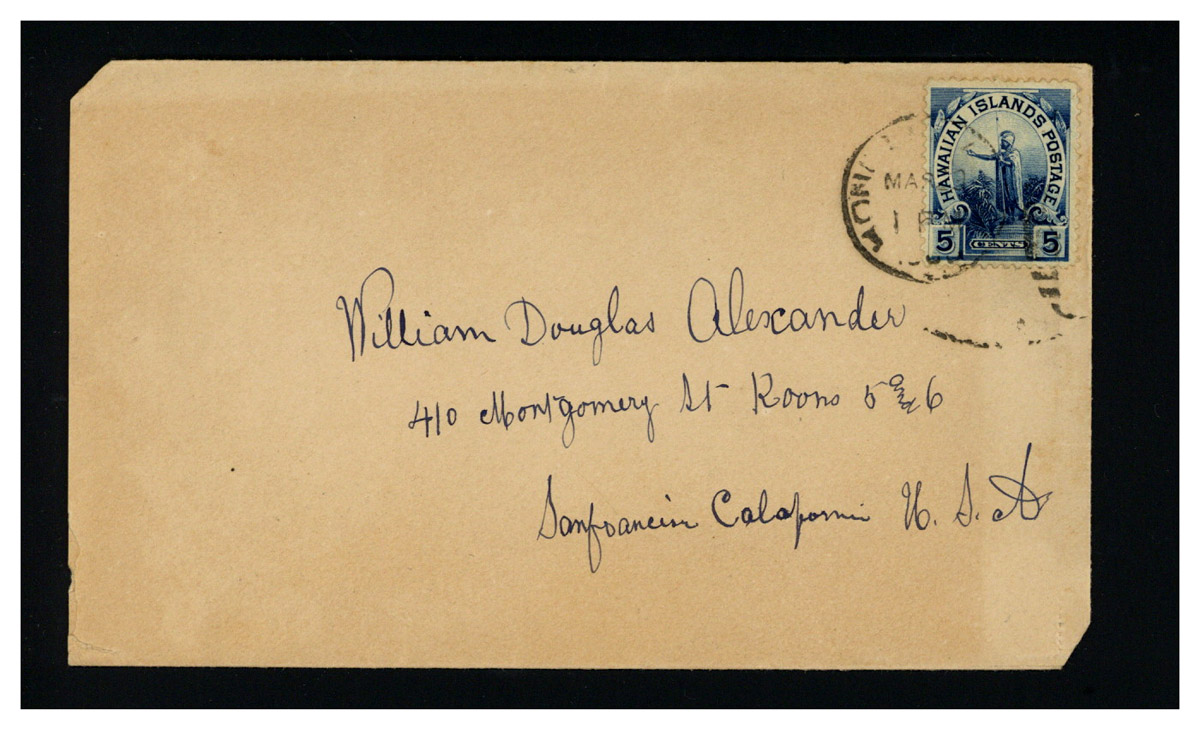 HAWAIIAN ISLANDS POSTAGE
5 CENTS 5
MAR
William Douglas Alexander
410 Montgomery St Rooms 5 & 6
Sanfrancisco Calafornia U. S. A